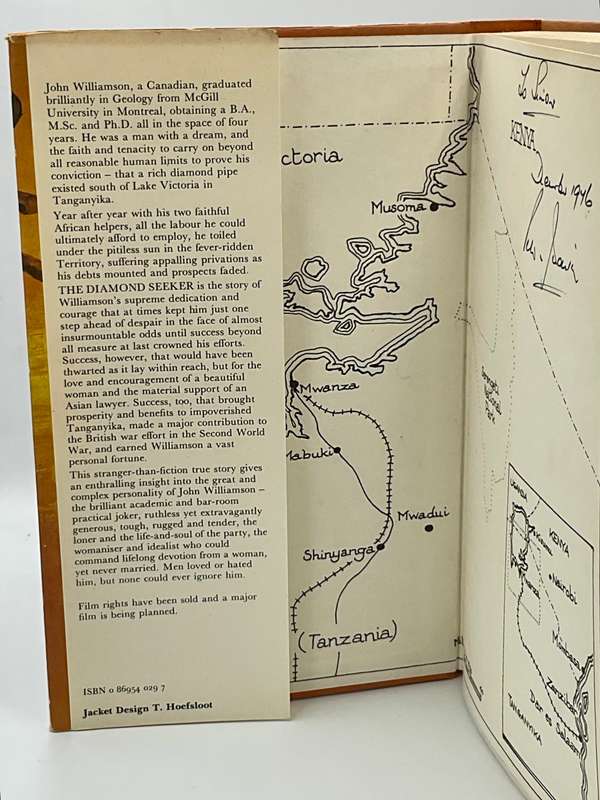 John Williamson, a Canadian, graduated
brilliantly in Geology from McGill
University in Montreal, obtaining a B.A.,
M.Sc. and Ph.D. all in the space of four
years. He was a man with a dream, and
the faith and tenacity to carry on beyond
all reasonable human limits to prove his
conviction – that a rich diamond pipe
existed south of Lake Victoria in
Tanganyika.
Year after year with his two faithful
African helpers, all the labour he could
ultimately afford to employ, he toiled
under the pitiless sun in the fever-ridden
Territory, suffering appalling privations as
his debts mounted and prospects faded.
THE DIAMOND SEEKER is the story of
Williamson's supreme dedication and
courage that at times kept him just one
step ahead of despair in the face of almost
insurmountable odds until success beyond
all measure at last crowned his efforts.
Success, however, that would have been
thwarted as it lay within reach, but for the
love and encouragement of a beautiful
woman and the material support of an
Asian lawyer. Success, too, that brought
prosperity and benefits to impoverished
Tanganyika, made a major contribution to
the British war effort in the Second World
War, and earned Williamson a vast
personal fortune.
This stranger-than-fiction true story gives
an enthralling insight into the great and
complex personality of John Williamson –
the brilliant academic and bar-room
practical joker, ruthless yet extravagantly
generous, tough, rugged and tender, the
loner and the life-and-soul of the party, the
womaniser and idealist who could
command lifelong devotion from a woman,
yet never married. Men loved or hated
him, but none could ever ignore him.
Film rights have been sold and a major
film is being planned.
ISBN 0 86954 029 7
Jacket Design T. Hoefsloot
ctoria
Musoma
Mwanza
Mabuki
Mwadui
Shinyanga
(Tanzania)
to
KENYA
1976
National
Park
UGANDA
KENYA
Nairobi
Mombasa
Zanzibar
Dar es Salaam
TANGANYIKA